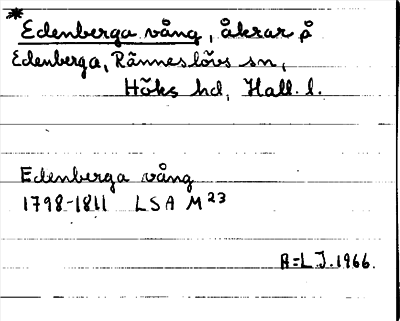 *Edenberga vång, åkrar på
Edenberga, Ränneslövs sn,
Höks hd, Hall. l.
Edenberga vång
1798-1811 LSA M 23
A=L J. 1966.